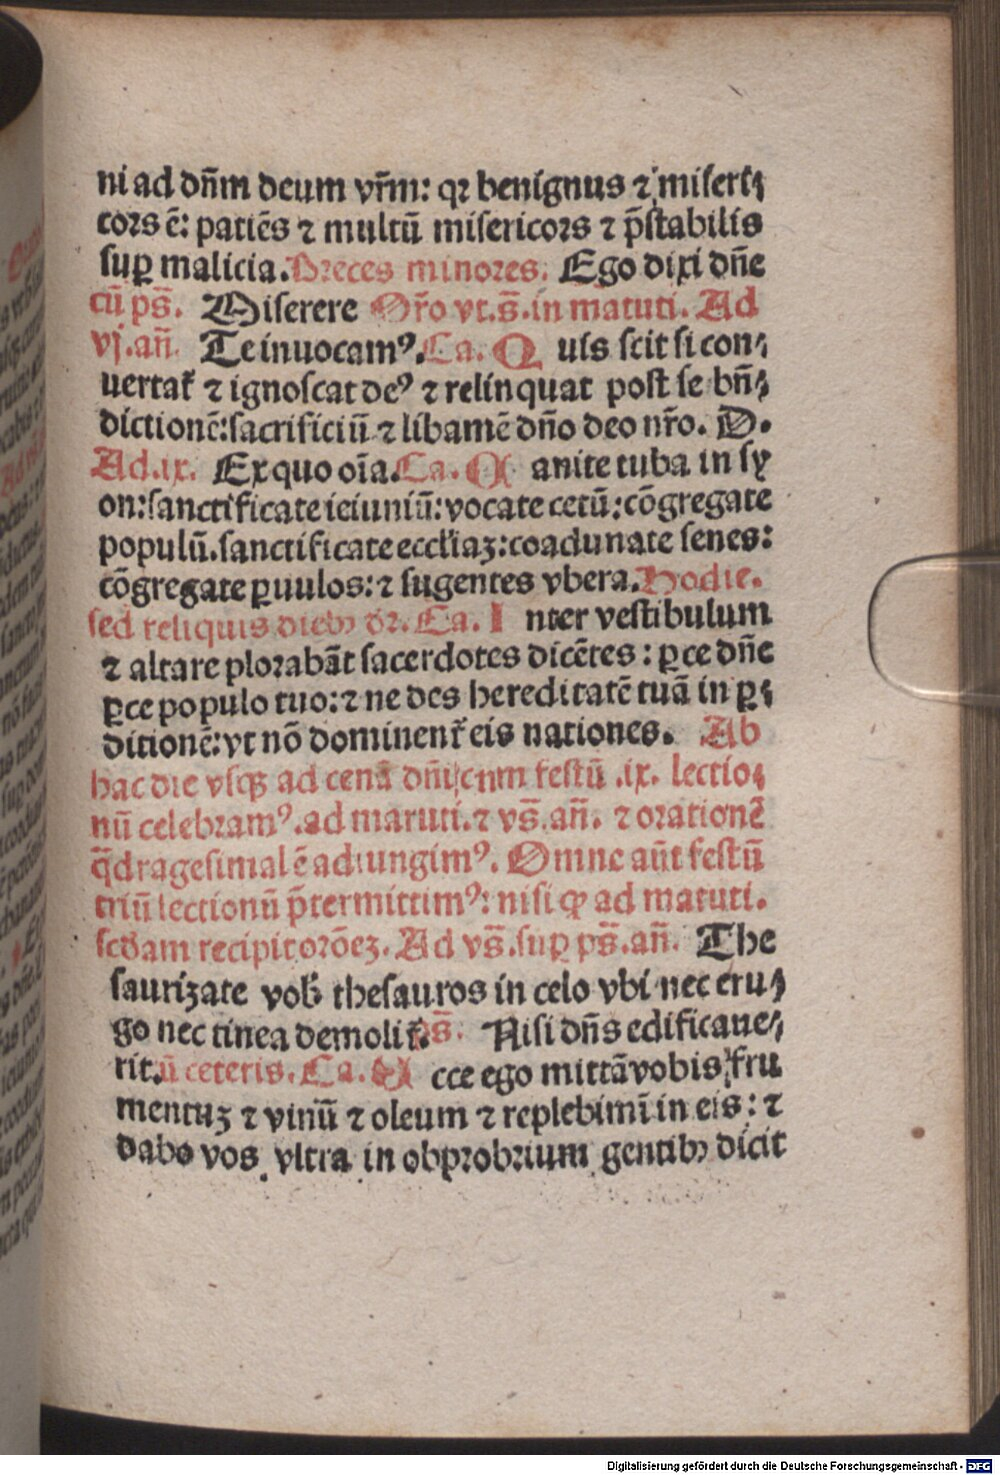 ni ad dn̄m deum vr̄m: qꝛ benignus ⁊ miseri⸗
cors ē: patiēs ⁊ multū misericors ⁊ p̄stabilis
suꝑ malicia. Preces minores. Ego dixi dn̄e
cū ps̄. Miserere Or̄o vt.s̄.in matuti. Ad
vj.an̄. Te inuocamꝰ. Ca. Q uis scit si con⸗
uertat̄ ⁊ ignoscat deꝰ ⁊ relinquat post se bn̄⸗
dictionē: sacrificiū ⁊ libamē dn̄o deo nr̄o. D.
Ad.ix. Ex quo oīa. Ca. C anite tuba in sy
on: sanctificate ieiuniū: vocate cetū: cōgregate
populū. sanctificate eccl̄iaꝫ: coadunate senes:
cōgregate ꝑuulos: ⁊ sugentes vbera. Hodie.
sed reliquis diebꝰ dr̄. Ca. I nter vestibulum
⁊ altare plorabāt sacerdotes dicētes: ꝑce dn̄e
ꝑce populo tuo: ⁊ ne des hereditatē tuā in ꝑ⸗
ditionē: vt nō dominent̄ eis nationes. Ab
hac die vsqꝫ ad cenā dn̄i cum festū .ix. lectio⸗
nū celebramꝰ. ad matuti. ⁊ vs̄. an̄. ⁊ orationē
q̄dragesimalē adiungimꝰ. Omne aūt festū
triū lectionū p̄termittimꝰ: nisi ꝙ ad matuti.
scd̄am recipit orōeꝫ. Ad vs̄. suꝑ ps̄. an̄. The
saurizate vob̄ thesauros in celo vbi nec eru⸗
go nec tinea demolit̄. ps̄. Nisi dn̄s edificaue⸗
rit. cū ceteris. Ca. E cce ego mittā vobis fru
mentuꝫ ⁊ vinū ⁊ oleum ⁊ replebimī in eis: ⁊
dabo vos vltra in obprobrium gentibꝰ dicit
Digitalisierung gefördert durch die Deutsche Forschungsgemeinschaft - DFG